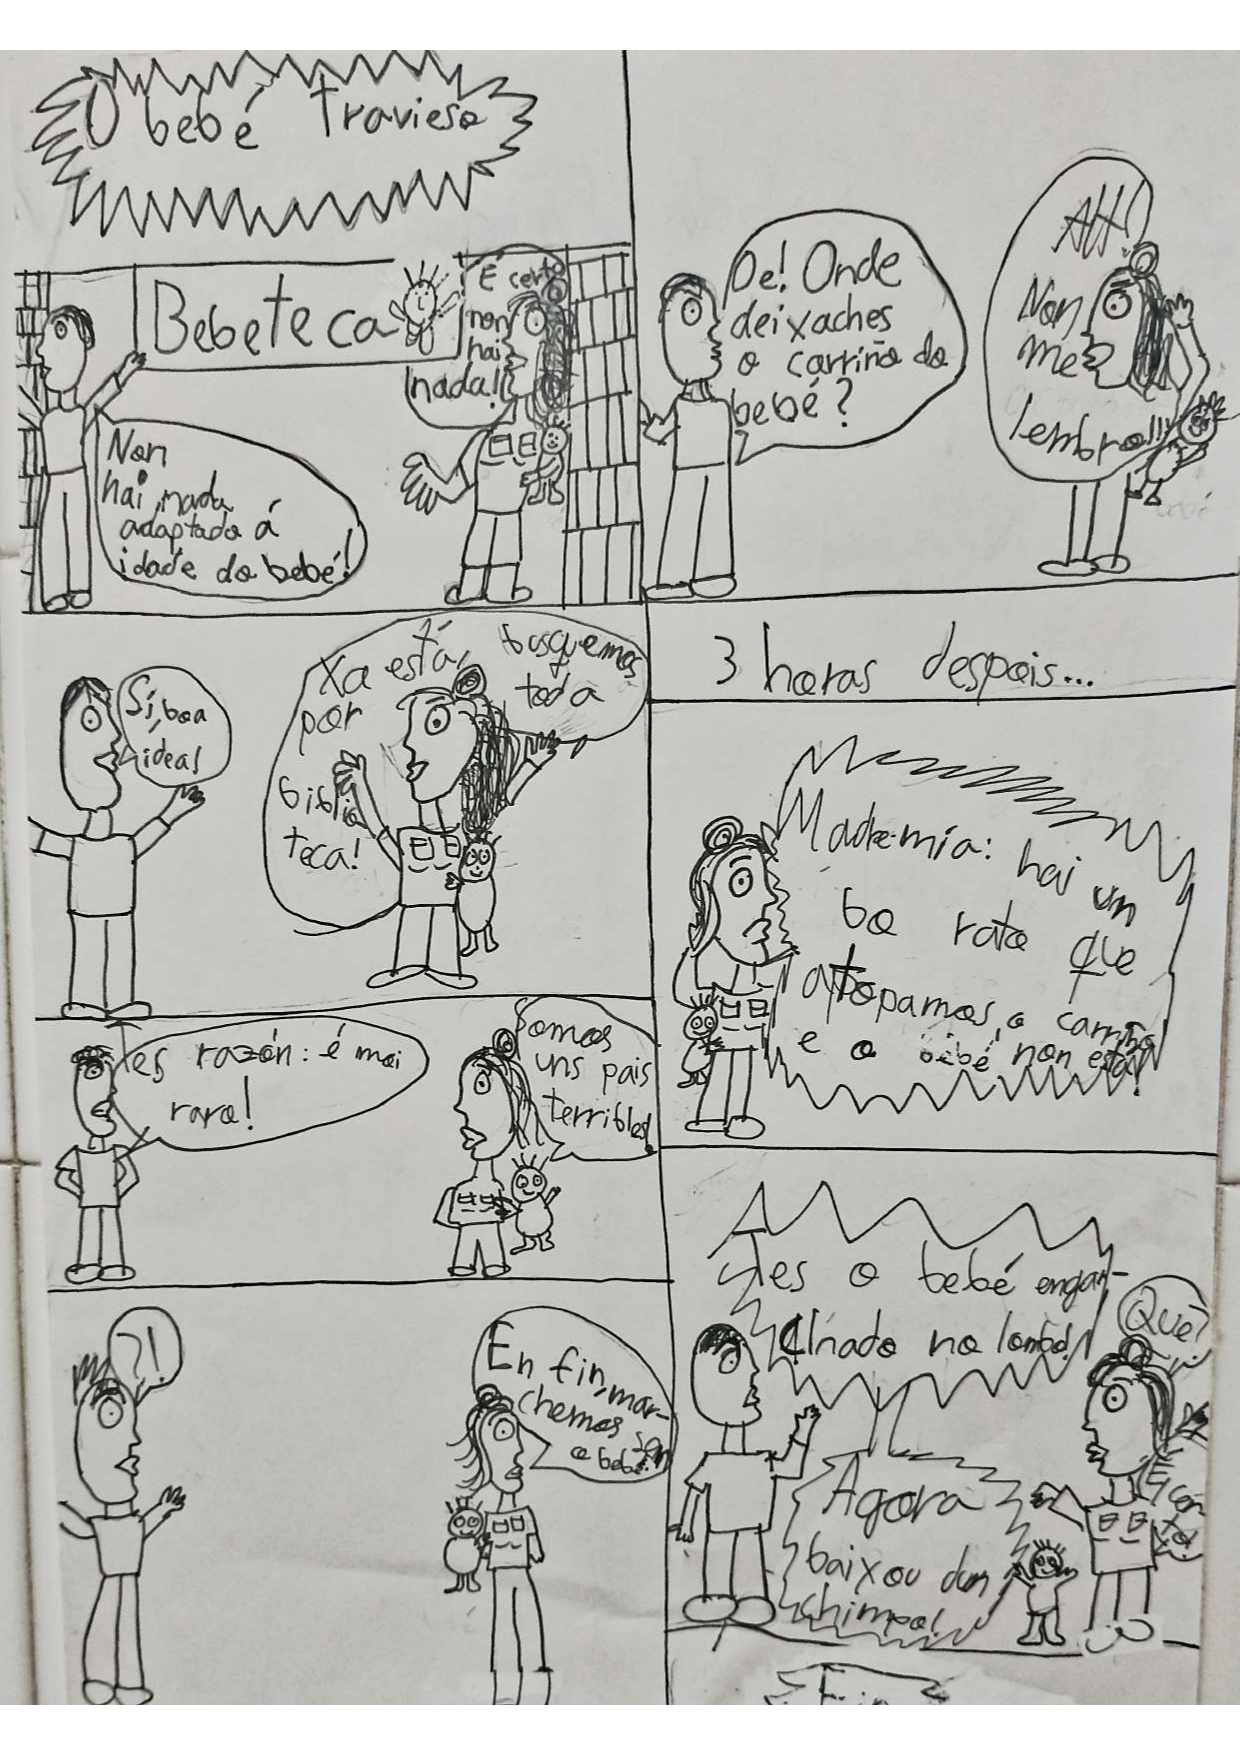 O bebé travieso
Bebeteca
Non
hai nada
adaptado á
idade do bebé!
É certo
non
hai
nada!!
Oe! Onde
deixaches
o carriño do
bebé?
AH!
Non
me
lembro!!!
Sí, boa
idea!
Xa está, busquemos
por toda
biblio
teca!
3 horas despois...
Madremía: hai un
bo rato que
atopamos o carriño
e o bebé non está!
Tes razón: é moi
raro!
Somos
uns pais
terribles!
?!
En fin, mar-
chemos sen
o bebé.
Tes o bebé engan-
chado no lombo!
Qué?
Agora
baixou dun
chimpo!
Fin